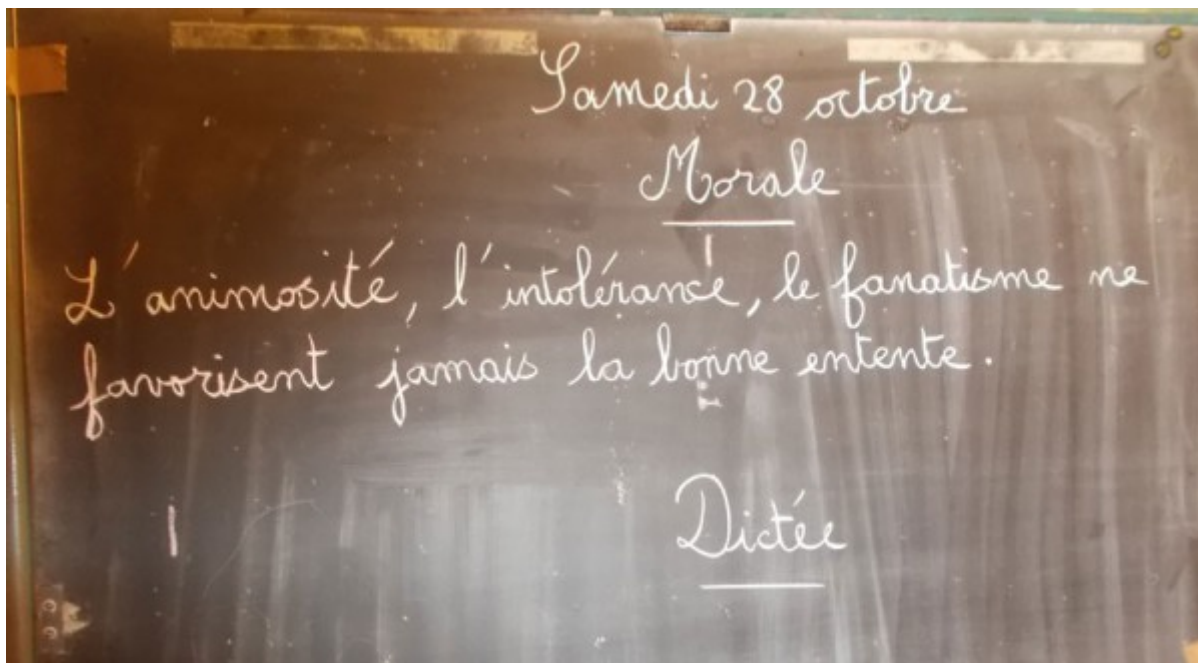 Samedi 28 octobre
Morale
L'animosité, l'intolérance, le fanatisme ne
favorisent jamais la bonne entente.
Dictée